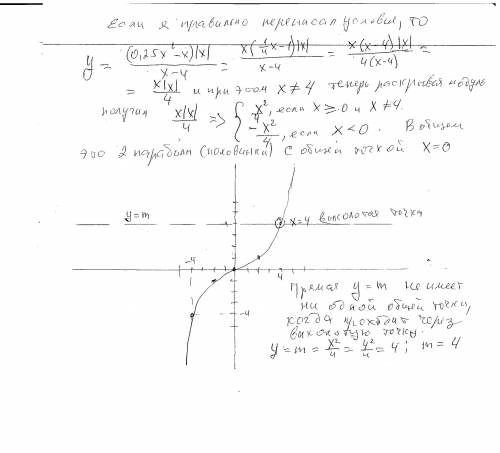 Если я правильно переписал условие, то
y = (0,25x² - x)|x| / x-4 = x(1/4x-1)|x| / x-4 = x(x-4)|x| / 4(x-4) =
= x|x| / 4 и при этом x ≠ 4 теперь раскрывая модуль
получим x|x| / 4 => { x²/4, если x ≥ 0 и x ≠ 4.
- x²/4, если x < 0. В общем
это 2 параболы (половинки) с общей точкой x=0
y=m
x=4 выколотая точка
-4
4
-4
Прямая y=m не имеет
ни одной общей точки,
когда проходит через
выколотую точку.
y = m = x²/4 = 4²/4 = 4; m = 4